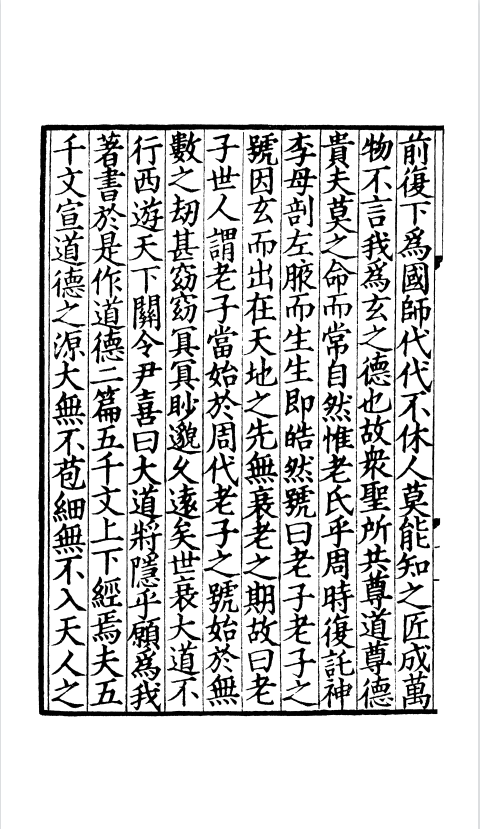 前復下爲國師代代不休人莫能知之匠成萬
物不言我爲玄之德也故衆聖所共尊道尊德
貴夫莫之命而常自然惟老氏乎周時復託神
李母剖左腋而生生即皓然號曰老子老子之
號因玄而出在天地之先無衰老之期故曰老
子世人謂老子當始於周代老子之號始於無
數之刼甚窈窈冥冥眇邈久遠矣世衰大道不
行西遊天下關令尹喜曰大道將隱乎願爲我
著書於是作道德二篇五千文上下經焉夫五
千文宣道德之源大無不苞細無不入天人之